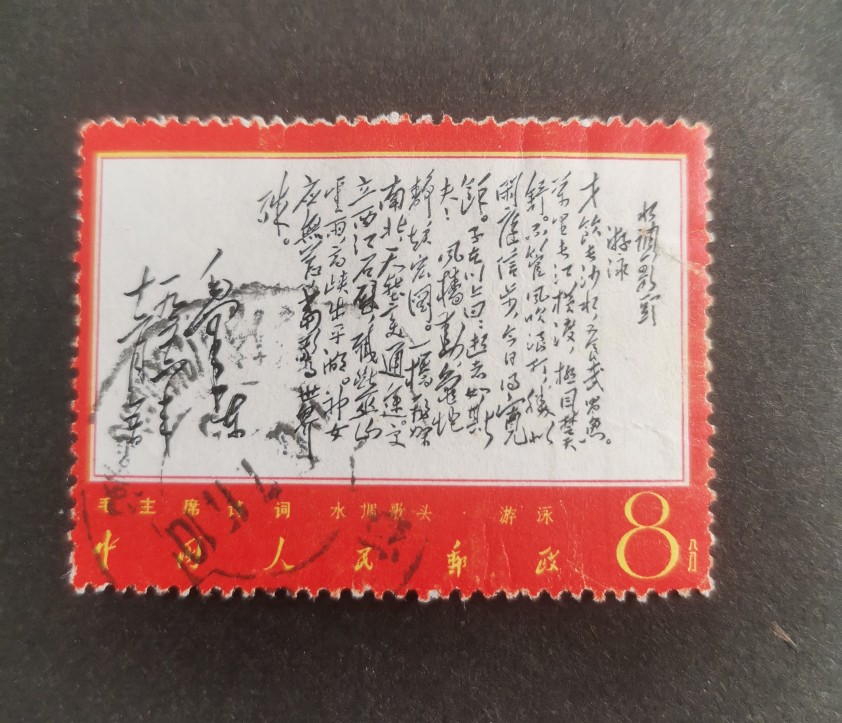 水调歌头
游泳
才饮长沙水,又食武昌鱼。
萬里长江横渡,极目楚天
舒。不管风吹浪打,勝似
闲庭信步,今日得宽
馀。子在川上曰:逝者如斯
夫!风樯动,龟蛇
静,起宏图。一桥飞架
南北,天堑变通途。更
立西江石壁,截断巫山
雲雨,高峡出平湖。神女
应無恙,當驚世界
殊。
毛泽东
一九五六年
十二月
毛主席诗词 水调歌头·游泳
中国人民郵政
8分